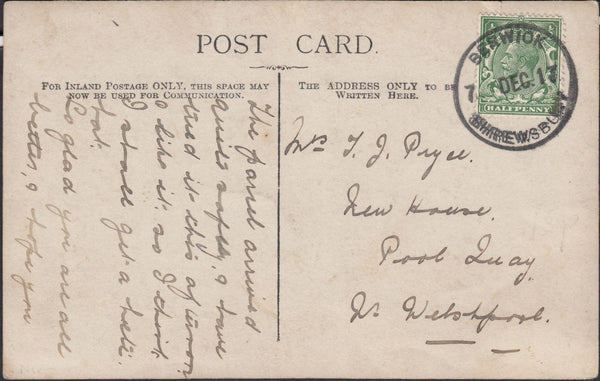 POST CARD.
FOR INLAND POSTAGE ONLY, THIS SPACE MAY
NOW BE USED FOR COMMUNICATION.
THE ADDRESS ONLY TO BE
WRITTEN HERE.
The parcel arrived
quite safely, I have
tried it this afternoon
& like it so I think
I shall get a hat.
So glad you are all
better, & hope you
Mrs T. J. Pryce.
New House.
Pool Quay.
Nr Welshpool.
BERWICK
7 DEC. 1
SHREWSBURY
HALFPENNY